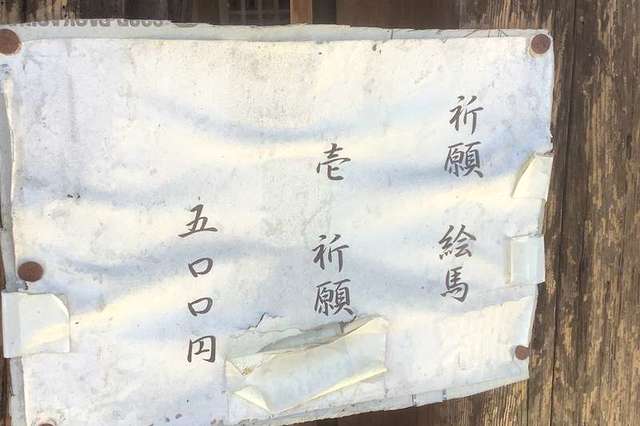 祈願 絵馬
壱 祈願
五〇〇円